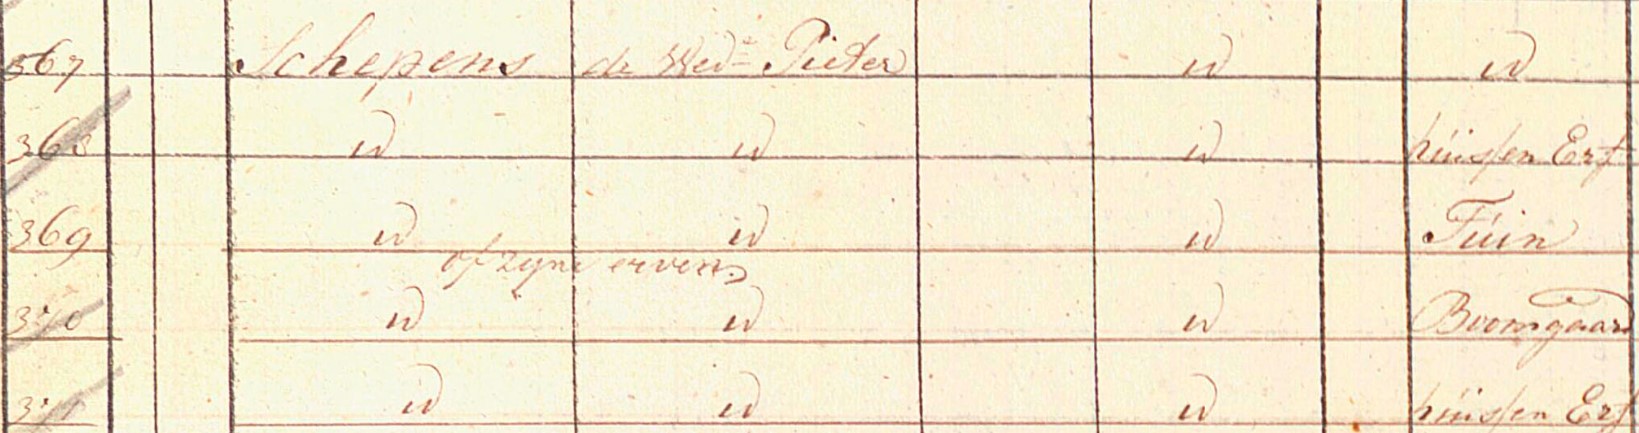 367 Schepens de Wed.e Pieter id id
368 id id id huis en Erf
369 id id id Tuin
of zyne erven
370 id id id Boomgaard
371 id id id huis en Erf